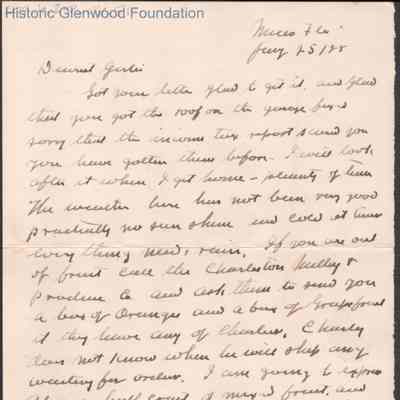 Historic Glenwood Foundation
Fla
Jany 25/28
Dearest Girlie
Got your letter glad to get it, and glad
that you got the roof on the garage fixed
sorry that the income tax report scared you
you have gotten them before - I will look
after it when I get home - plenty of time
The weather here has not been very good
practically no sun shine and cold at times
every thing needs rain. If you are out
of fruit call the Charleston &
Produce Co and ask them to send you
a box of Oranges and a box of Grapefruit
if they have any of Charleys. Charley
does not know when he will ship any
waiting for orders. I am going to express
half of mixed fruit, and